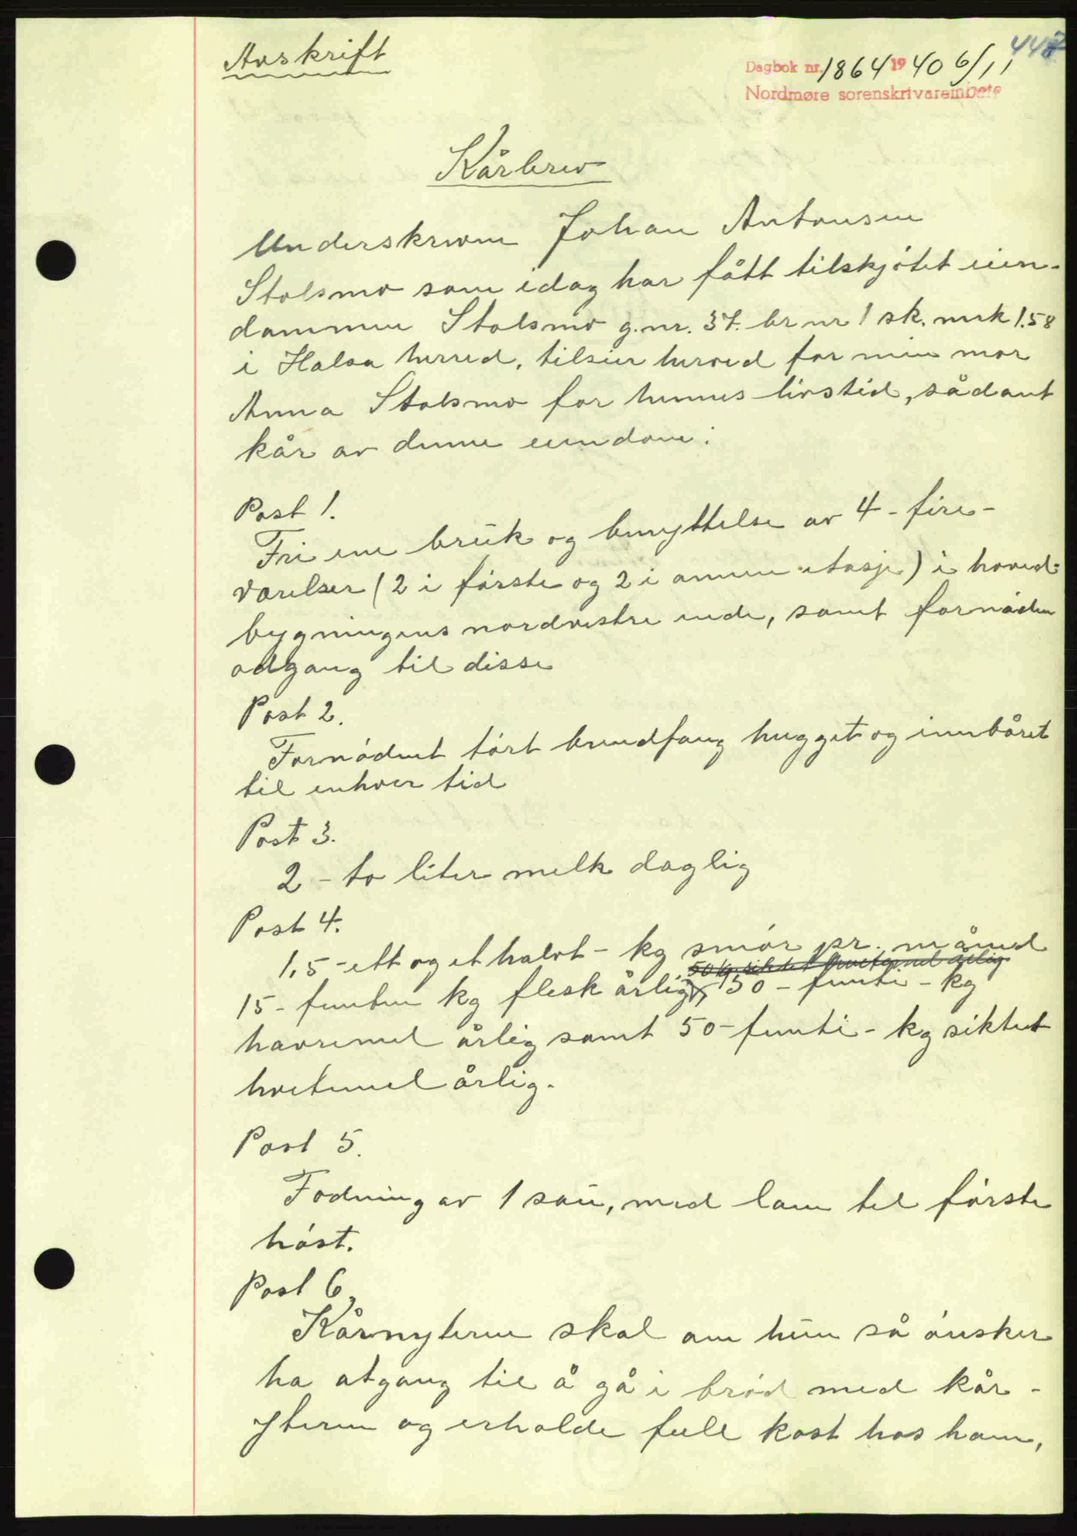 447
Avskrift
Dagbok nr. 1864 1940 6/11
Nordmøre sorenskriverembete
Kårbrev
Underskreven Johan Antonsen
Stolsmo som idag har fått tilskjötet eien-
dommen Stolsmo g.nr. 37. br nr 1 sk. mrk 1.58
i Halsa herred, tilsier herved for min mor
Anna Stolsmo for hennes livstid, sådant
kår av denne eiendom:
Post 1.
Fri ene bruk og benyttelse av 4 - fire -
værelser (2 i förste og 2 i annen etasje) i hoved-
bygningens nordvestre ende, samt fornöden
adgang til disse
Post 2.
Fornödent tört brendfang hugget og innbåret
til enhver tid
Post 3.
2 - to liter melk daglig
Post 4.
1,5 - ett og et halvt - kg smör pr. måned
50 kg siktet hvetemel årlig
15 - femten kg flesk årlig, 50 - femti - kg
havremel årlig samt 50 - femti - kg siktet
hvetemel årlig.
Post 5.
Fodning av 1 sau, med lam til förste
höst.
Post 6.
Kårnyteren skal om hun så önsker
ha atgang til å gå i bröd med kår-
yteren og erholde full kost hos ham,